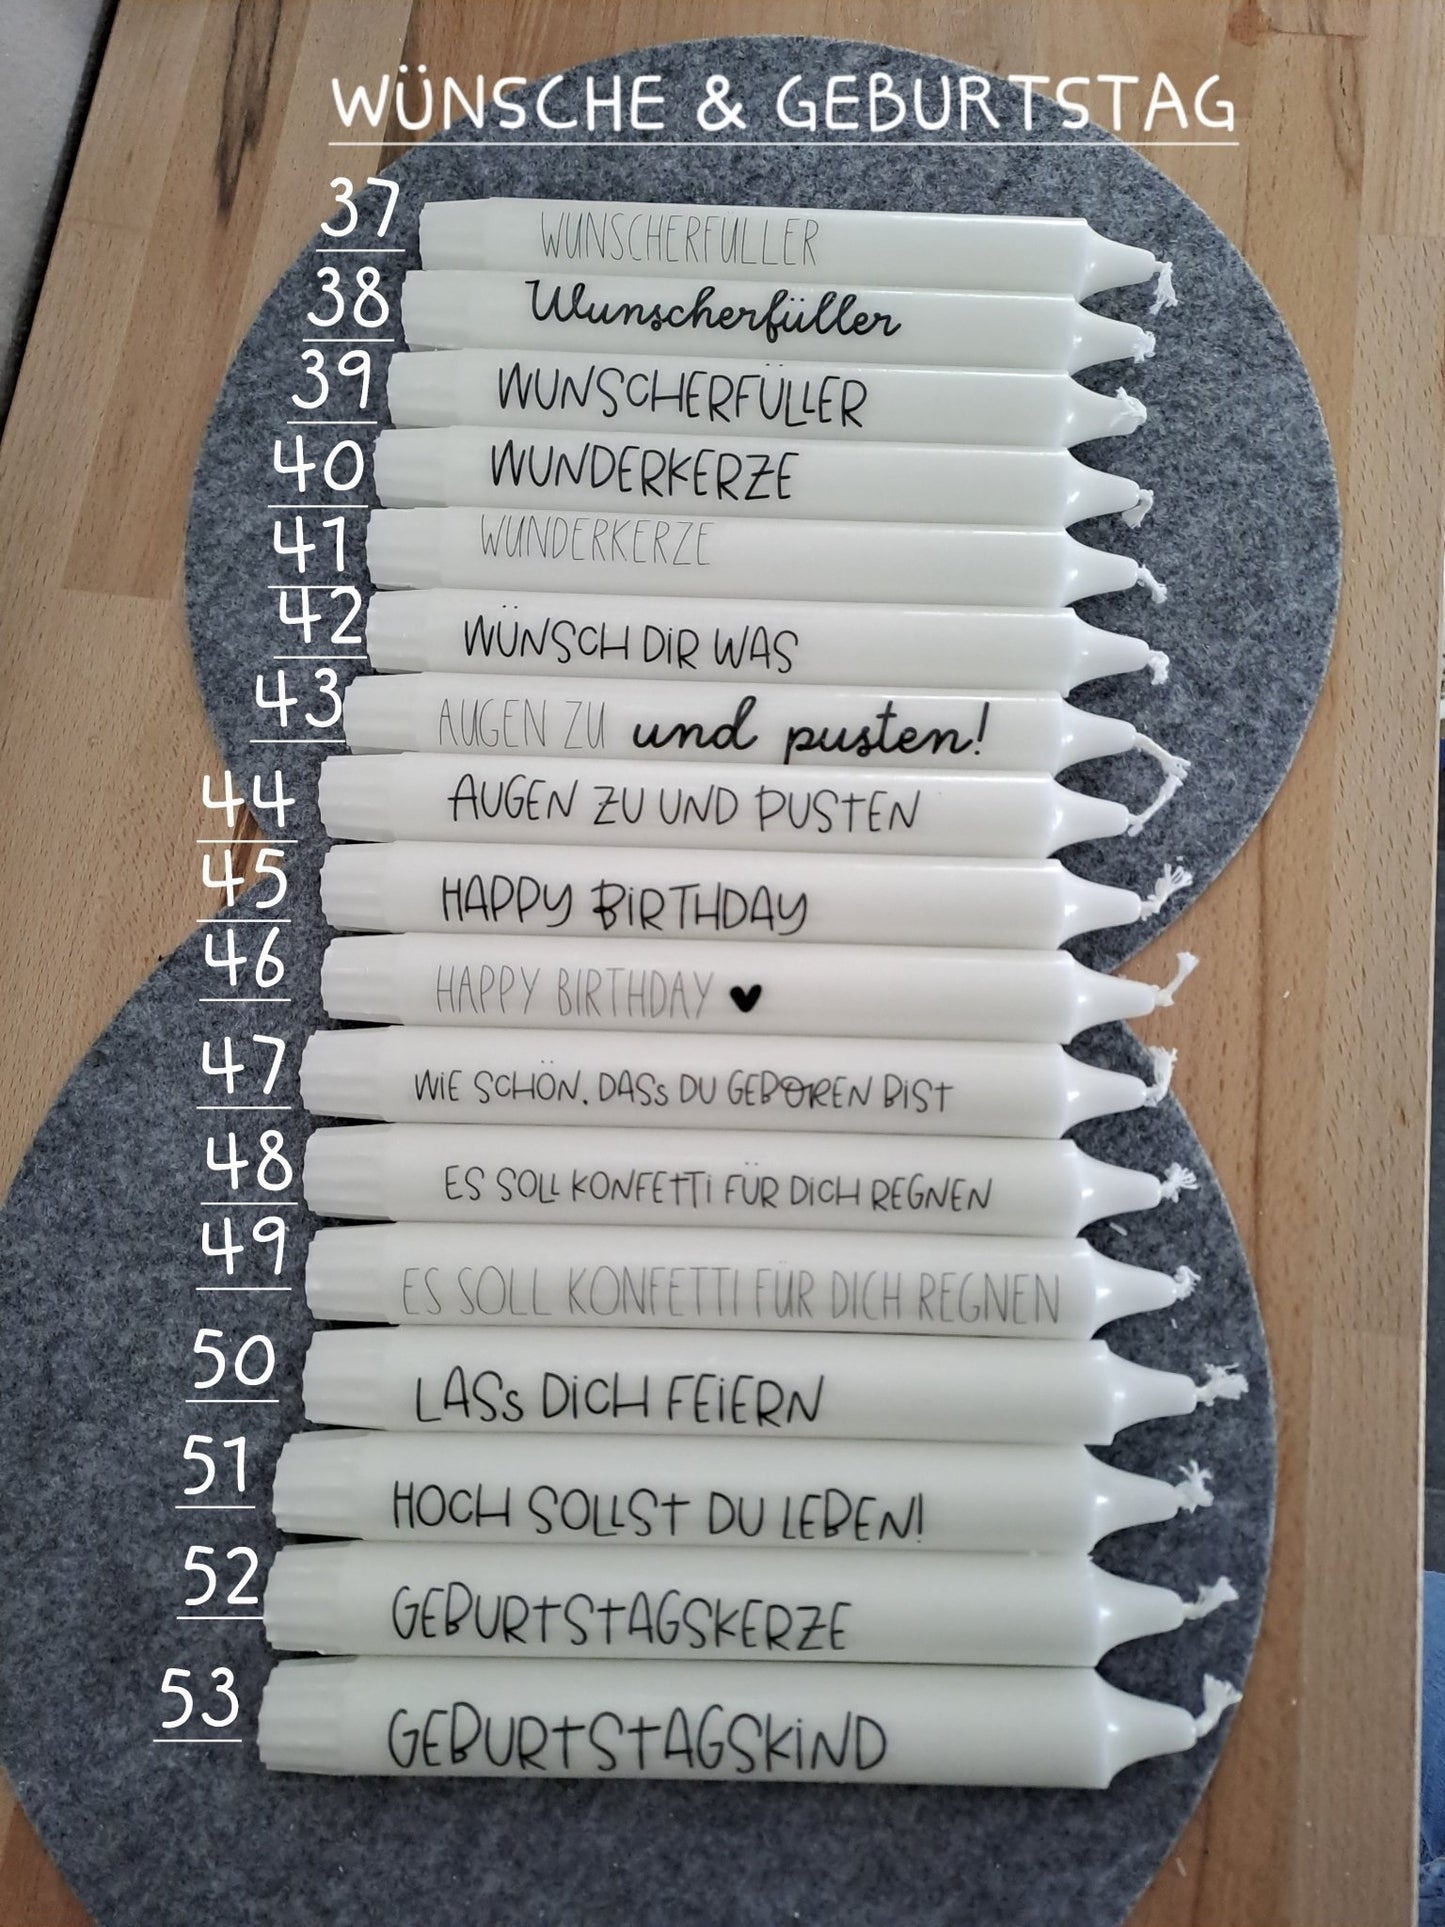 WÜNSCHE & GEBURTSTAG
37 WUNSCHERFÜLLER
38 Wunscherfüller
39 WUNSCHERFÜLLER
40 WUNDERKERZE
41 WUNDERKERZE
42 WÜNSCH DIR WAS
43 AUGEN ZU und pusten!
44 AUGEN ZU UND PUSTEN
45 HAPPY BIRTHDAY
46 HAPPY BIRTHDAY ♥
47 WIE SCHÖN, DASS DU GEBOREN BIST
48 ES SOLL KONFETTI FÜR DICH REGNEN
49 ES SOLL KONFETTI FÜR DICH REGNEN
50 LASS DICH FEIERN
51 HOCH SOLLST DU LEBEN!
52 GEBURTSTAGSKERZE
53 GEBURTSTAGSKIND